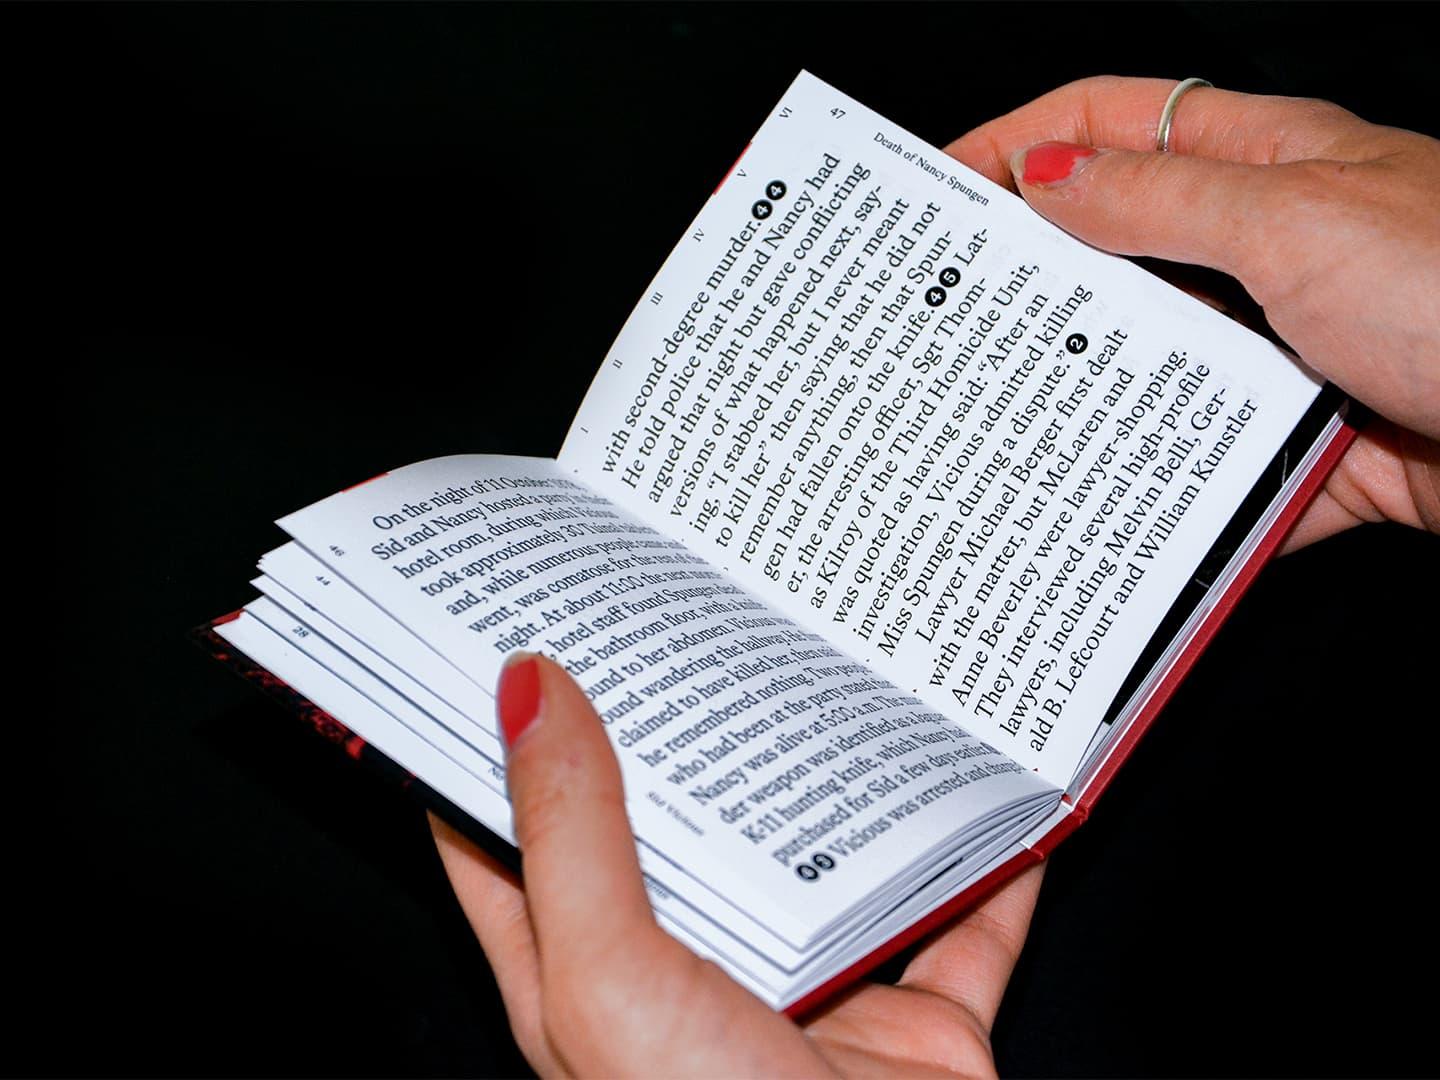 46
On the night of 11 October 1978
Sid and Nancy hosted a party in their
hotel room, during which Vicious
took approximately 30 Tuinal
and, while numerous people came and
went, was comatose for the rest of the
night. At about 11:00 the next morn-
hotel staff found Spungen dead
the bathroom floor, with a knife
ound to her abdomen. Vicious was
ound wandering the hallway. He
claimed to have killed her, then said
he remembered nothing. Two people
who had been at the party stated that
Nancy was alive at 5:00 a.m. The mur-
der weapon was identified as a Jaguar
K-11 hunting knife, which Nancy had
purchased for Sid a few days earlier.
43 Vicious was arrested and charged
Sid Vicious
44
28
VI
V
IV
III
II
I
47
Death of Nancy Spungen
with second-degree murder.44
He told police that he and Nancy had
argued that night but gave conflicting
versions of what happened next, say-
ing, “I stabbed her, but I never meant
to kill her,” then saying that he did not
remember anything, then that Spun-
gen had fallen onto the knife.45 Lat-
er, the arresting officer, Sgt Thom-
as Kilroy of the Third Homicide Unit,
was quoted as having said: “After an
investigation, Vicious admitted killing
Miss Spungen during a dispute.”2
Lawyer Michael Berger first dealt
with the matter, but McLaren and
Anne Beverley were lawyer-shopping.
They interviewed several high-profile
lawyers, including Melvin Belli, Ger-
ald B. Lefcourt and William Kunstler